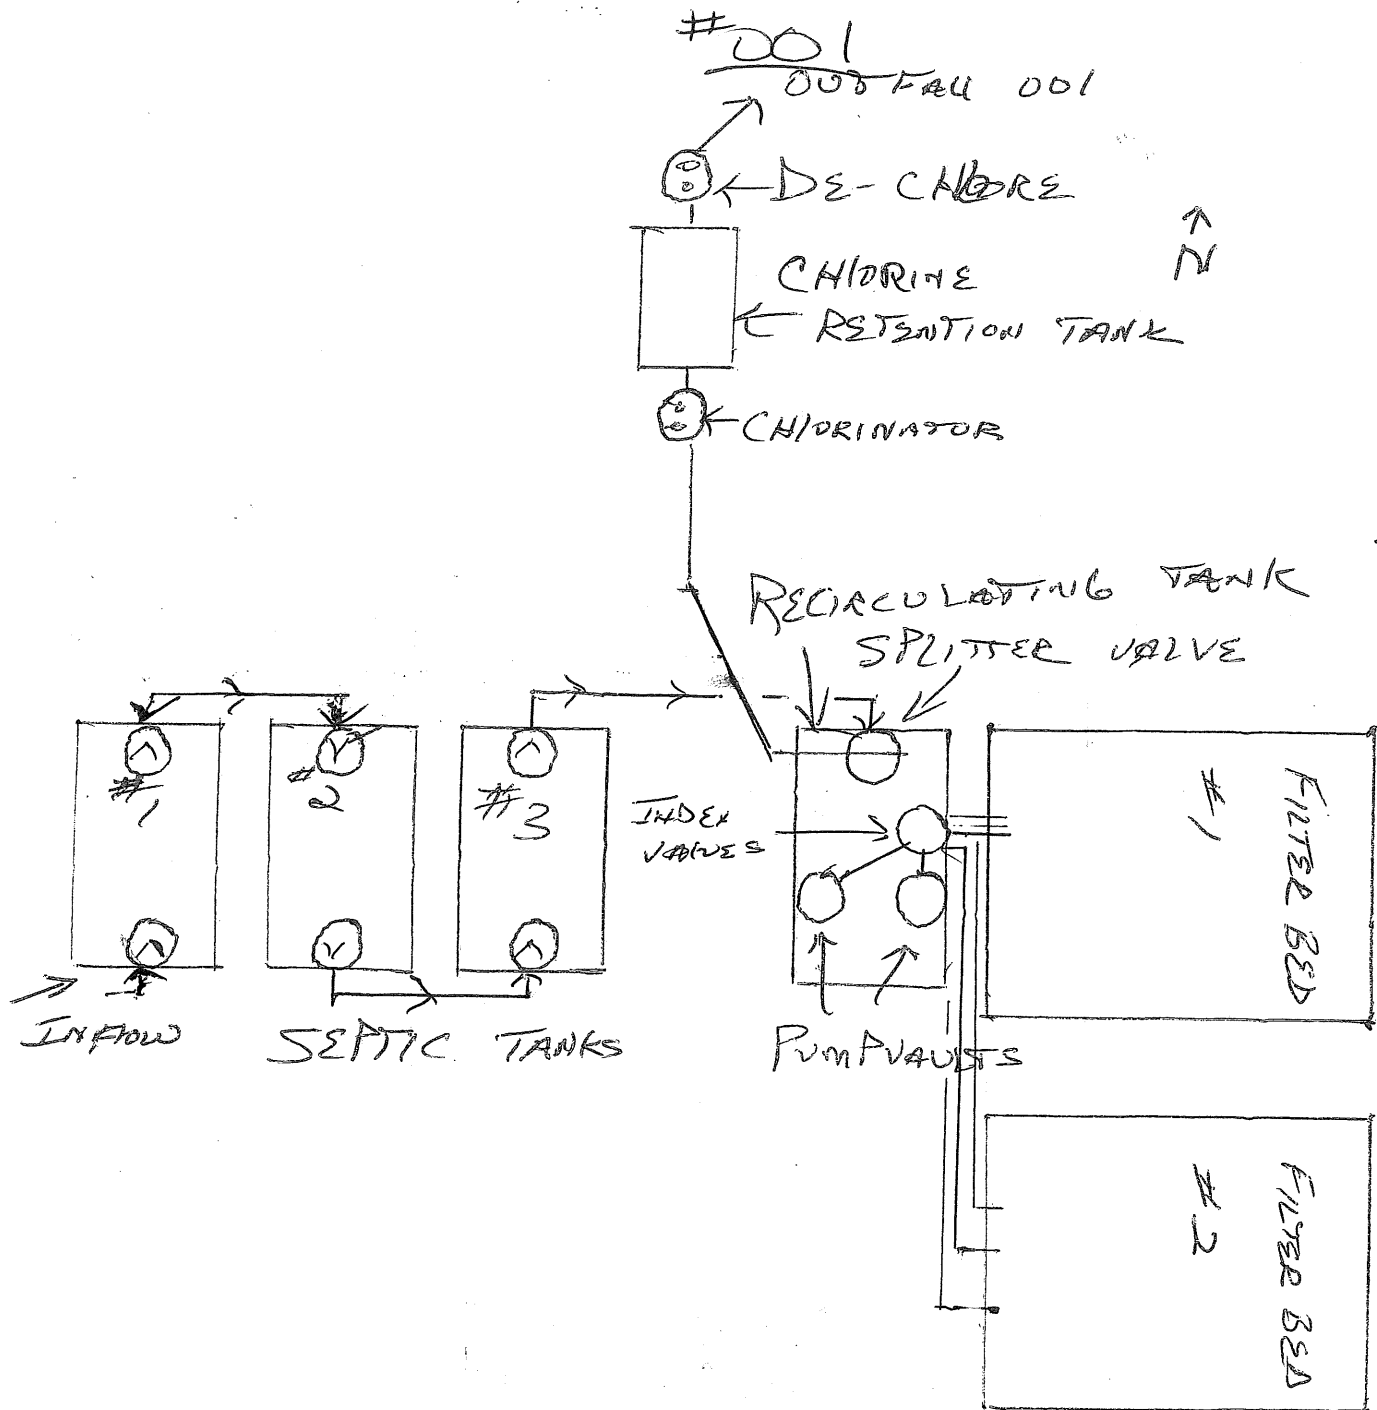 #001
OUTFALL 001
DE-CHLORE
N
CHLORINE
RETENTION TANK
CHLORINATOR
RECIRCULATING TANK
SPLITTER VALVE
#1
#2
#3
INDEX
VALVES
FILTER BED
#1
INFLOW
SEPTIC TANKS
PUMP VAULTS
FILTER BED
#2